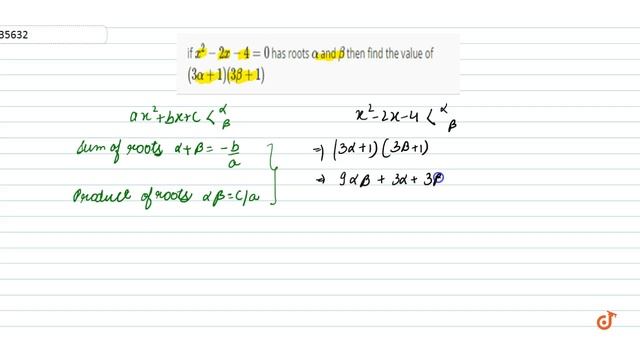 35632
if x² − 2x − 4 = 0 has roots α and β then find the value of
(3α + 1)(3β + 1)
ax²+bx+c < α β
Sum of roots α+β = -b/a
Produce of roots αβ = c/a
x²-2x-4 < α β
⇒ (3α+1)(3β+1)
⇒ 9αβ + 3α + 3β